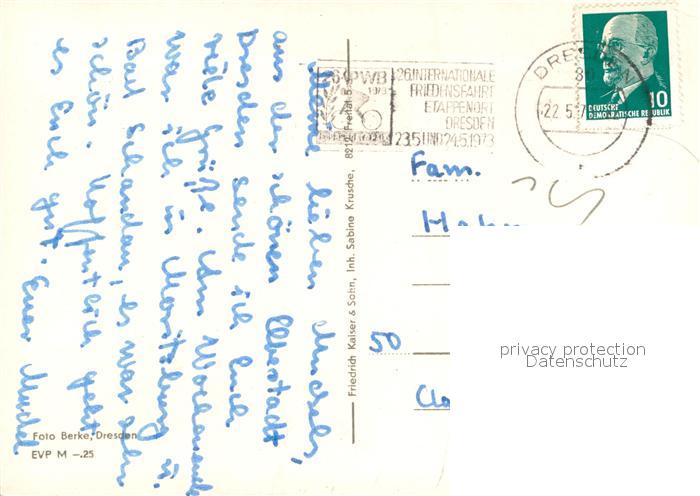 Meine lieben Muschels,
aus der schönen Elbestadt
Dresden sende ich Euch
viele Grüße. Am Wochenende
war ich in Moritzburg u.
Bad Schandau, es war sehr
schön. Hoffentlich geht
es Euch gut. Euer Muckel
Foto Berke, Dresden
EVP M -.25
Friedrich Kaiser & Sohn, Inh. Sabine Krusche, 8210 Freital 5
26. PWB
1973
26. INTERNATIONALE
FRIEDENSFAHRT
ETAPPENORT
DRESDEN
23.5. UND 24.5.1973
DRESDEN
80
22.5.7
DEUTSCHE
DEMOKRATISCHE REPUBLIK
10
Fam.
50
privacy protection
Datenschutz